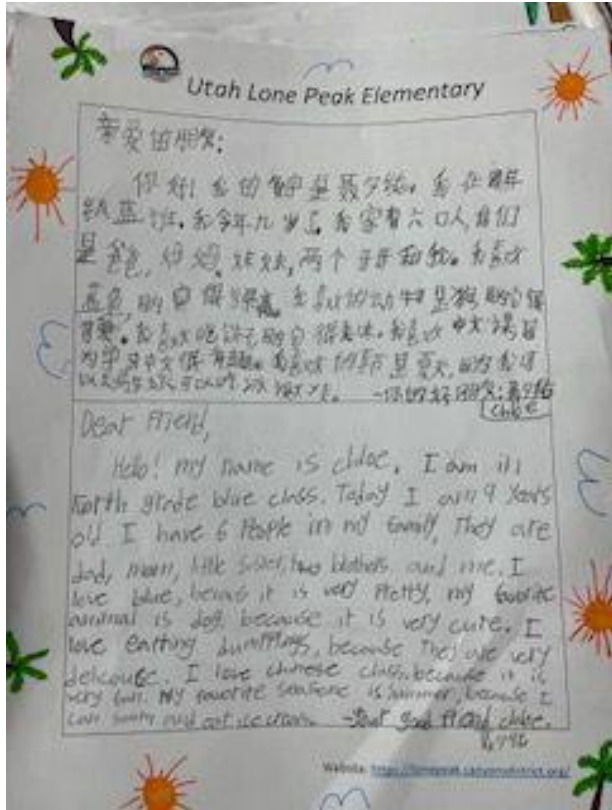 Utah Lone Peak Elementary
亲爱的朋友:
你好! 我的名字是聂夕 我在四年
级蓝班。我今年九岁了。我家有六口人,他们
是爸爸,妈妈,妹妹,两个 和我。我喜欢
蓝色,因为它很漂亮。我喜欢的动物是狗,因为它很
可爱。我喜欢吃饺子,因为它很美味。我喜欢中文课,因
为学习中文很有趣。我喜欢的 是夏天,因为我可
以 可以吃冰 -你的好朋友:聂夕
Chloe
Dear Friend,
Hello! my name is chloe. I am in
Forth grade blue class. Today I am 9 years
old I have 6 People in my family, They are
dad, mom, little sister, two brothers and me. I
love blue, it is very Pretty, my favorite
animal is dog, because it is very cute. I
love eatting because They are very
I love chinese class, because it is
very fun. My favorite is summer, because I
can and eat ice cream. -Your good friend chloe.
Website: https://lonepeak.canyonsdistrict.org/